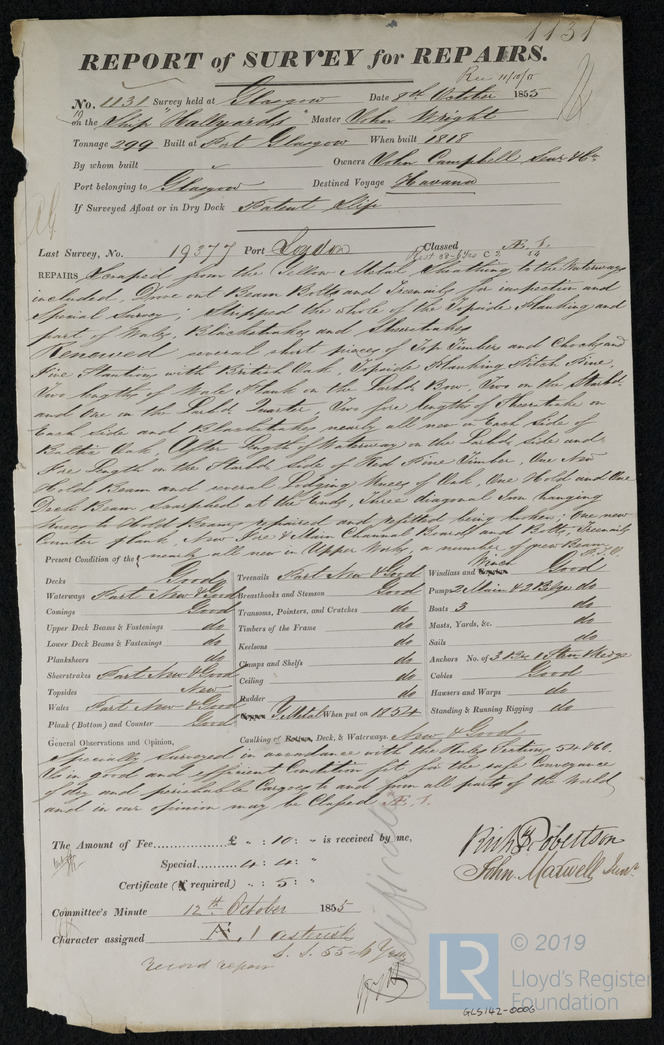 1131
REPORT of SURVEY for REPAIRS.
Rec 11/10/5
No. 1131 Survey held at Glasgow Date 8th October 1855
on the Ship "Hallyards" Master John Wright
Tonnage 299 Built at Port Glasgow When built 1818
By whom built Owners John Campbell Senr & Co
Port belonging to Glasgow Destined Voyage Havana
If Surveyed Afloat or in Dry Dock Patent Slip
Last Survey, No. 19377 Port London Classed Æ 1.
REPAIRS Scraped from the Yellow Metal Sheathing to the Waterways
included, Drove out Beam Bolts and Treenails for inspection and
Special Survey; Stripped the whole of the Topside Planking and
part of Wales, Blackstrakes and Sheerstrakes
Renewed several short pieces of Top Timbers and Chocks and
Fine Stantions with British Oak, Topside Planking Pitch Pine,
Two lengths of Wale Plank on the Larbd. Bow, Two on the Starbd.
and One on the Larbd. Quarter, Two fore lengths of Sheerstrake on
Each side and Blackstrakes nearly all new on Each Side of
Baltic Oak, After length of Waterway on the Larbd. side and
Fore length on the Starbd. Side of Red Pine Timber, One New
Hold Beam and several Lodging Knees of Oak, One Hold and One
Deck Beam Scarphed at the Ends, Three diagonal Iron hanging
knees to Hold Beams repaired and refitted being broken; One new
Counter plank, New Fore & Main Channel Boards and Bolts, Treenails
nearly all new in Upper Works, a number of new Beam
Present Condition of the
Decks Good
Waterways Part New & Good
Comings Good
Upper Deck Beams & Fastenings do
Lower Deck Beams & Fastenings do
Planksheers do
Sheerstrakes Part New & Good
Topsides New
Wales Part New & Good
Plank (Bottom) and Counter Good
Treenails Part New & Good
Breasthooks and Stemson Good
Transoms, Pointers, and Crutches do
Timbers of the Frame do
Keelsons do
Clamps and Shelfs do
Ceiling do
Rudder do
Y. Metal When put on 1854
Windlass and Winch Good
Pumps 2 Main & 2 Bilge do
Boats 3 do
Masts, Yards, &c. do
Sails do
Anchors No. of 3 Br & Stm & Kedge
Cables Good
Hawsers and Warps do
Standing & Running Rigging do
Caulking of Bottom, Deck, & Waterways. New & Good
General Observations and Opinion,
Specially Surveyed in accordance with the Rules Section 54 & 60.
Is in good and efficient Condition fit for the safe Conveyance
of dry and perishable Cargoes to and from all parts of the World
and in our opinion may be Classed Æ. 1.
The Amount of Fee............£ " : 10 : " is received by me,
Special......... 4 : 4 : "
Certificate (if required) " : 5 : "
Richd. Robertson
John Maxwell Junr.
Committee's Minute 12th October 1855
Character assigned Æ. 1 asterisk
S. S. 55 - 4 Yrs
record repair
Certificate
© 2019
LR
Lloyd's Register
Foundation
GLS142-0006